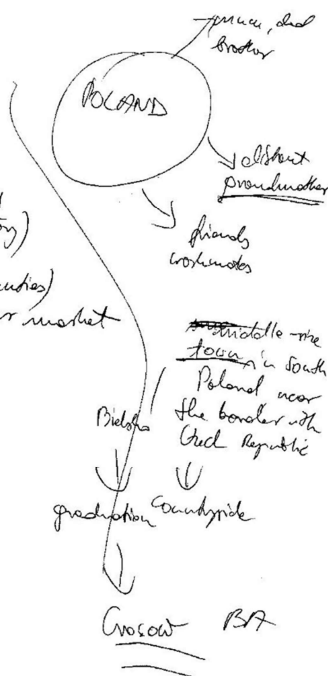 mum, dad
brother
POLAND
distant
grandmother
friends
workmates
market
middle-size
town, in South
Poland near
the border with
Czech Republic
Bielsko
graduation
Countryside
Cracow BA